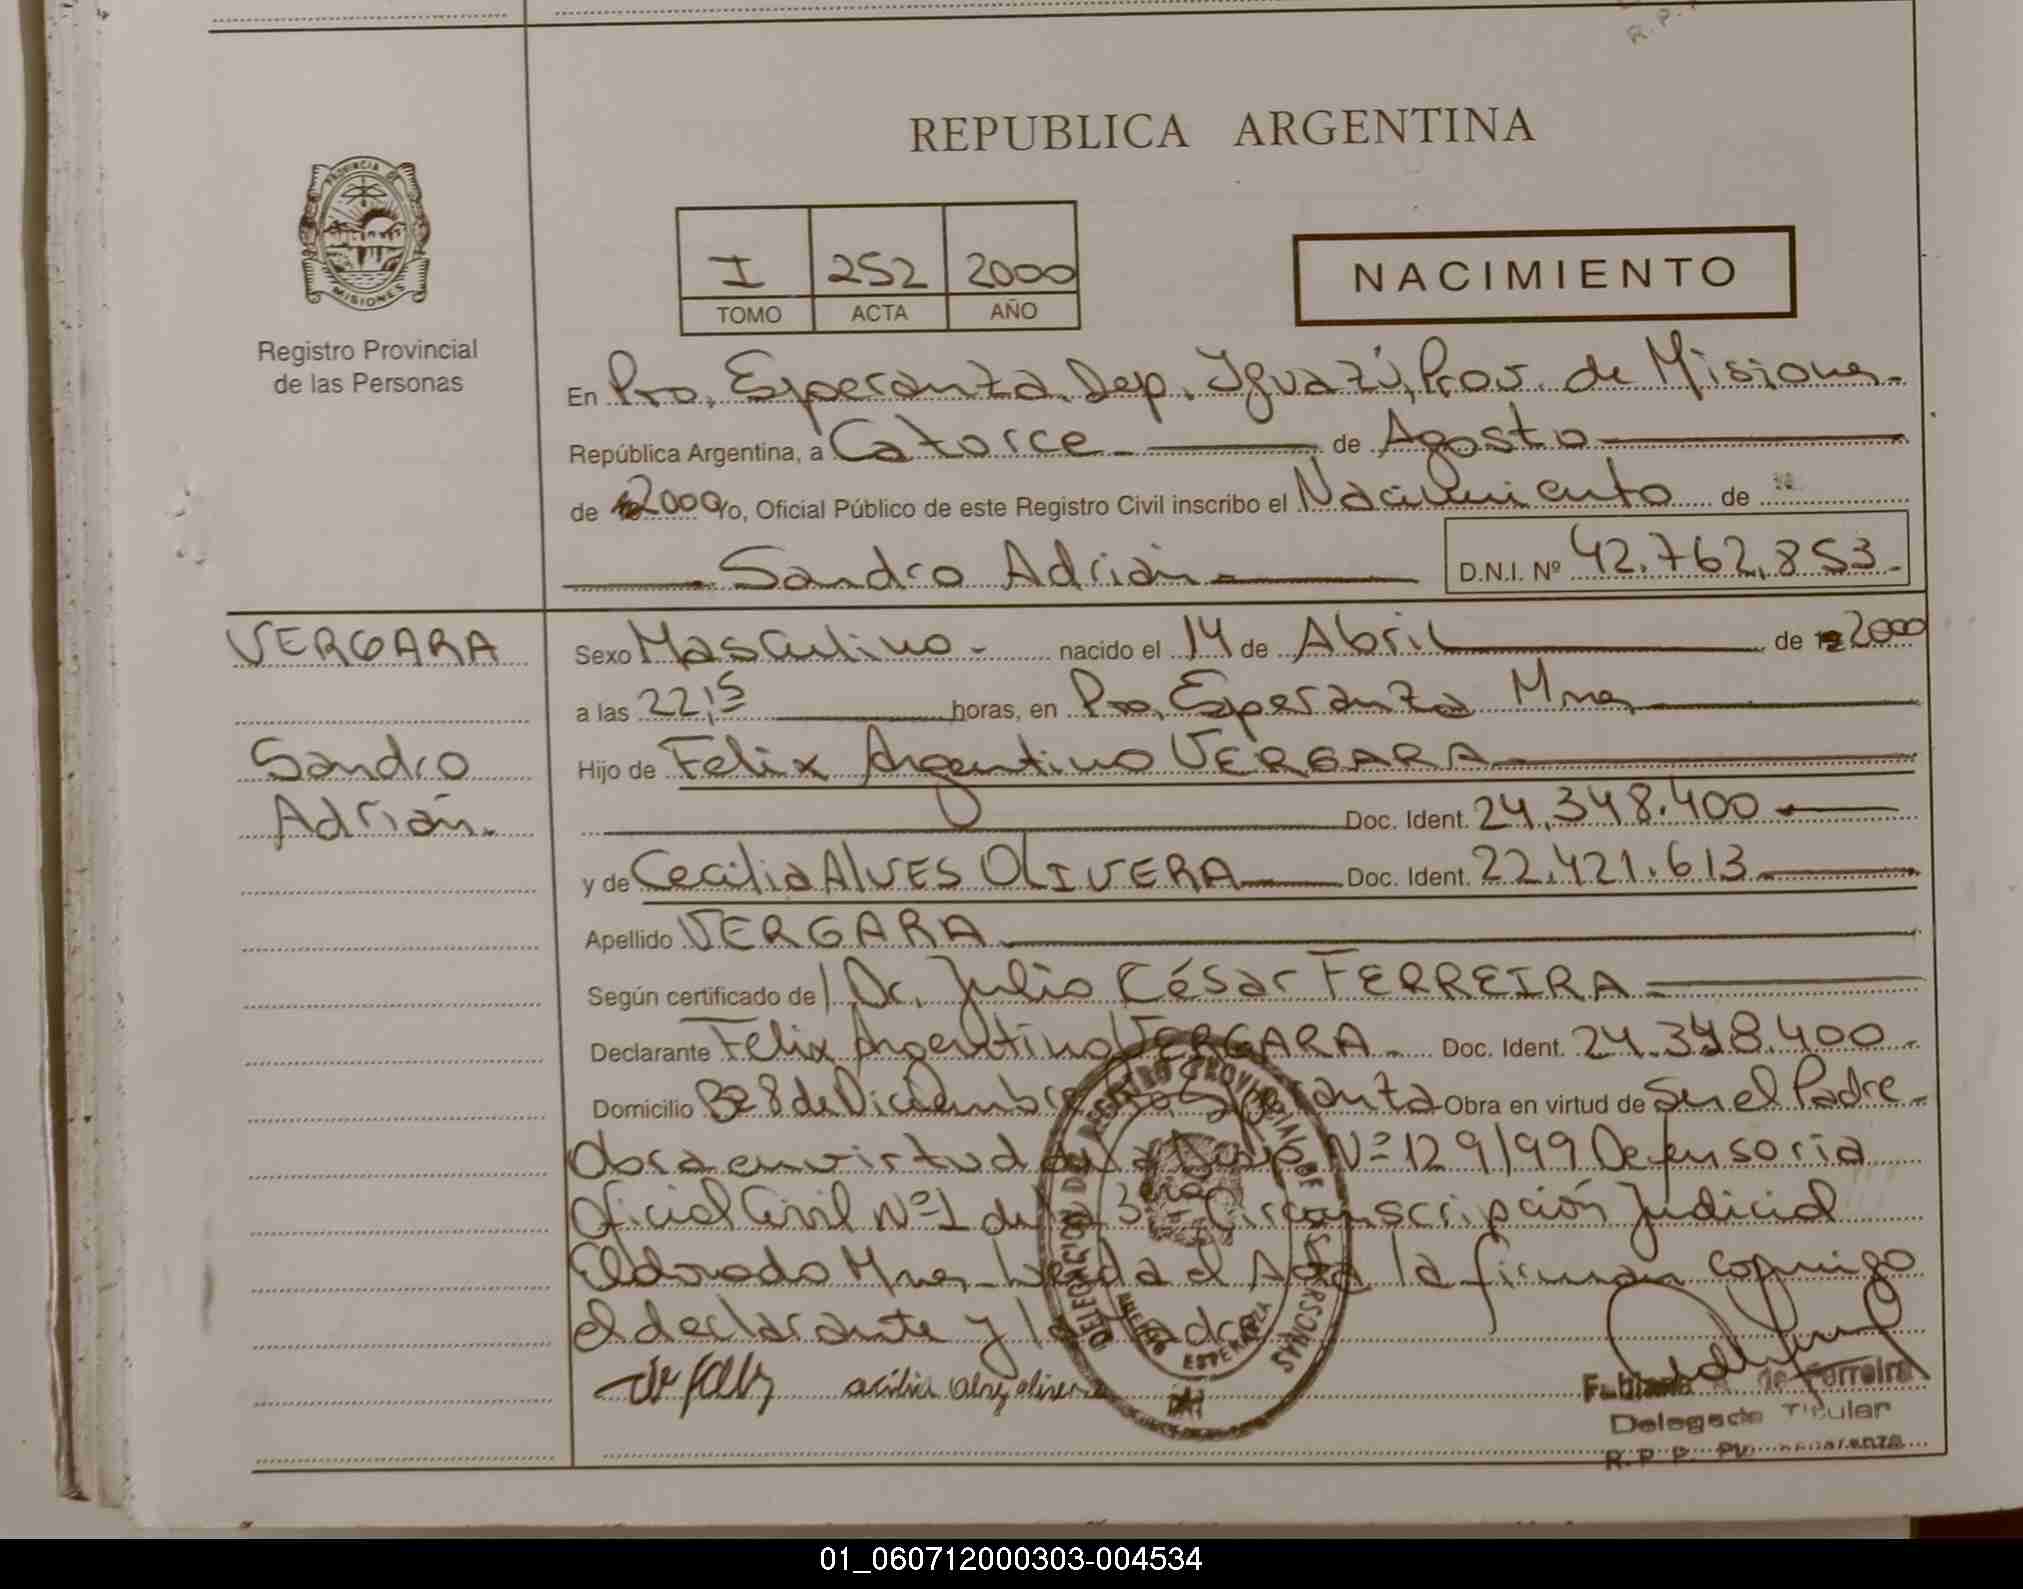 R.P.
REPUBLICA ARGENTINA
PROVINCIA DE
MISIONES
Registro Provincial
de las Personas
I 252 2000
TOMO ACTA AÑO
NACIMIENTO
En Pto. Esperanza. Dep. Iguazú, Prov. de Misiones.
República Argentina, a Catorce de Agosto
de 2000 Yo, Oficial Público de este Registro Civil inscribo el Nacimiento de
Sandro Adrián
D.N.I. Nº 42.762.853.
VERGARA
Sandro
Adrián.
Sexo Masculino. nacido el 14 de Abril de 2000
a las 22,15 horas, en Pto. Esperanza Mnes
Hijo de Felix Argentino VERGARA
Doc. Ident. 24.348.400
y de Cecilia ALVES OLIVERA Doc. Ident. 22.421.613
Apellido VERGARA
Según certificado de Dr. Julio César FERREIRA
Declarante Felix Argentino VERGARA. Doc. Ident. 24.348.400.
Domicilio Bº 28 de Diciembre Pto. Esperanza Obra en virtud de Ser el Padre.
Obra en virtud de la Disp. Nº 129/99 Defensoria
Oficial Civil Nº 1 de la 3era Circunscripción Judicial
Eldorado Mnes. Leída el Acta la firman conmigo
el declarante y la Madre.
DELEGACION DEL REGISTRO PROVINCIAL DE LAS PERSONAS
PUERTO ESPERANZA
Fabiana de Ferreira
Delegada Titular
R.P.P. Pto. Esperanza
01_060712000303-004534